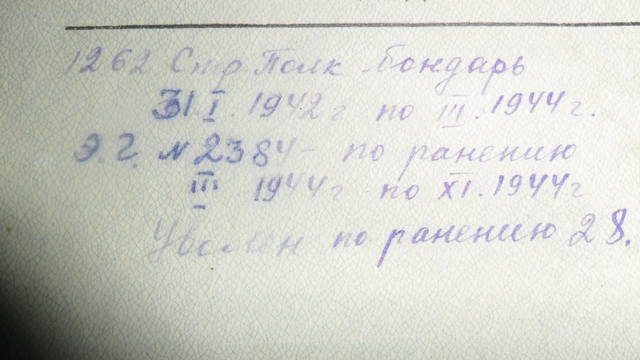 1262 Стр Полк бондарь
31 I. 1942 г по III. 1944 г.
Э. Г. № 2384 - по ранению
III 1944 г по XI. 1944 г
I
Уволен по ранению 28.